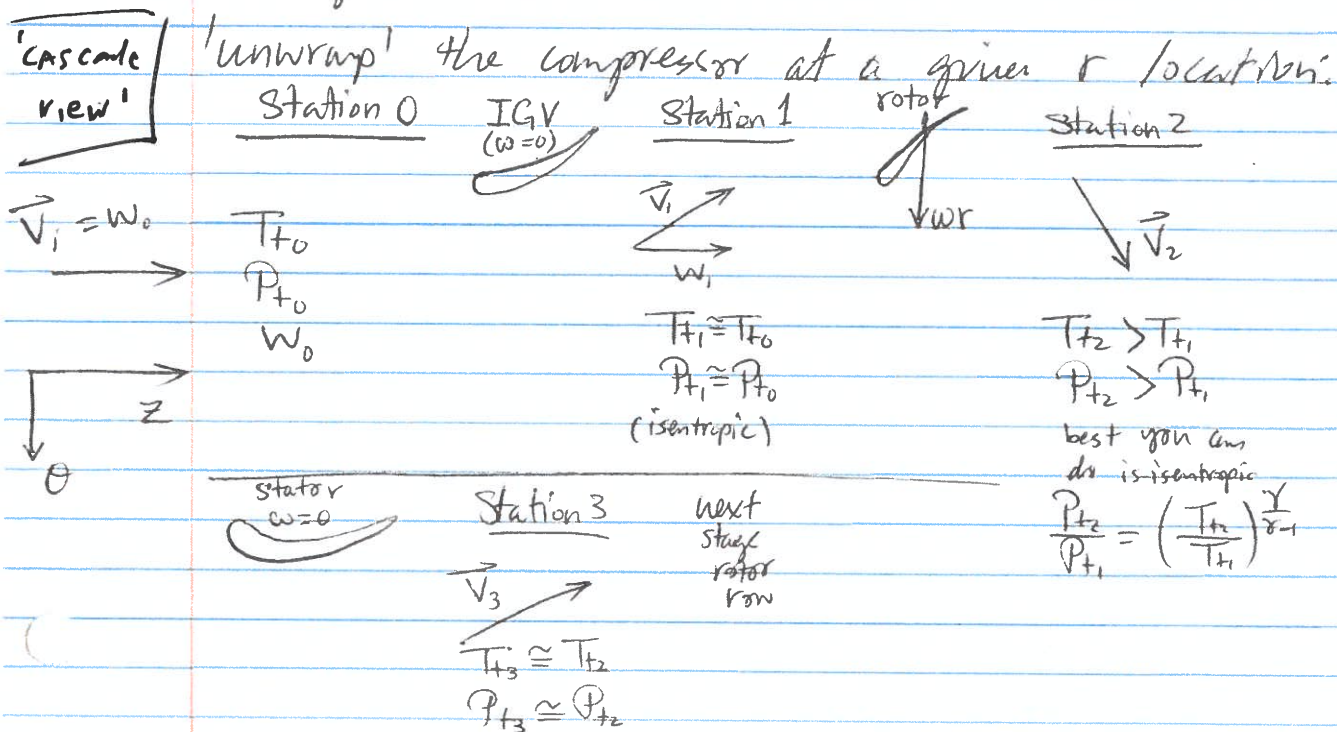 'cascade view'
'unwrap' the compressor at a given r location:
Station 0
IGV
(ω=0)
Station 1
rotor
Station 2
V⃗₁ = W₀
T_t₀
P_t₀
W₀
V⃗₁
W₁
ωr
V⃗₂
T_t₁ ≅ T_t₀
P_t₁ ≅ P_t₀
(isentropic)
T_t₂ > T_t₁
P_t₂ > P_t₁
best you can
do is isentropic
P_t₂/P_t₁ = (T_t₂/T_t₁)^(γ/(γ-1))
Z
θ
stator
ω=0
Station 3
next
stage
rotor
row
V⃗₃
T_t₃ ≅ T_t₂
P_t₃ ≅ P_t₂